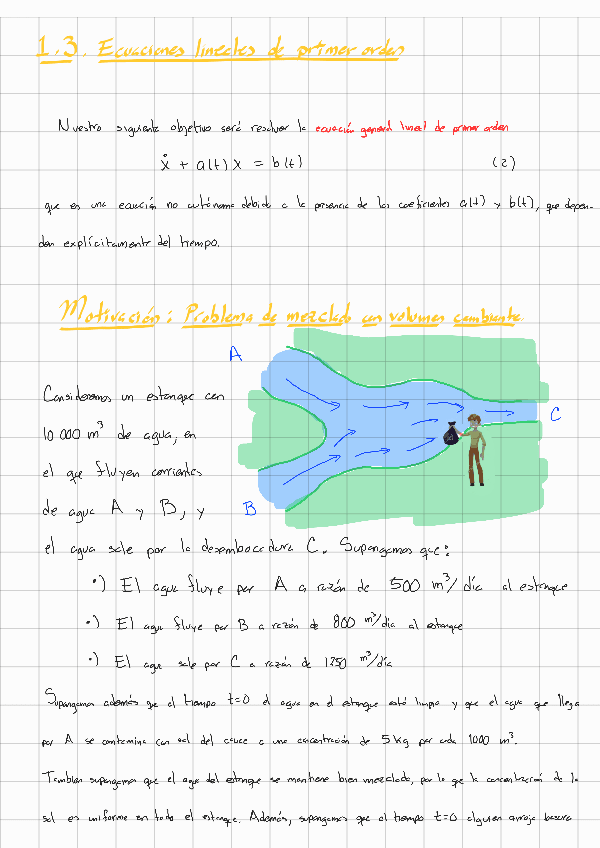 1.3. Ecuaciones lineales de primer orden
Nuestro siguiente objetivo será resolver la ecuación general lineal de primer orden
ẋ + a(t) x = b(t) (2)
que es una ecuación no autónoma debido a la presencia de los coeficientes a(t) y b(t), que depen-
den explícitamente del tiempo.
Motivación: Problema de mezclado con volumen cambiante
A
Consideremos un estanque con
10 000 m³ de agua, en
C
el que fluyen corrientes
de agua A y B, y
B
el agua sale por la desembocadura C. Supongamos que:
•) El agua fluye por A a razón de 500 m³/día al estanque
•) El agua fluye por B a razón de 800 m³/día al estanque
•) El agua sale por C a razón de 1250 m³/día
Supongamos además que al tiempo t=0 el agua en el estanque está limpia y que el agua que llega
por A se contamina con sal del cauce a una concentración de 5 kg por cada 1000 m³.
También supongamos que el agua del estanque se mantiene bien mezclada, por lo que la concentración de la
sal es uniforme en todo el estanque. Además, supongamos que al tiempo t=0 alguien arroja basura